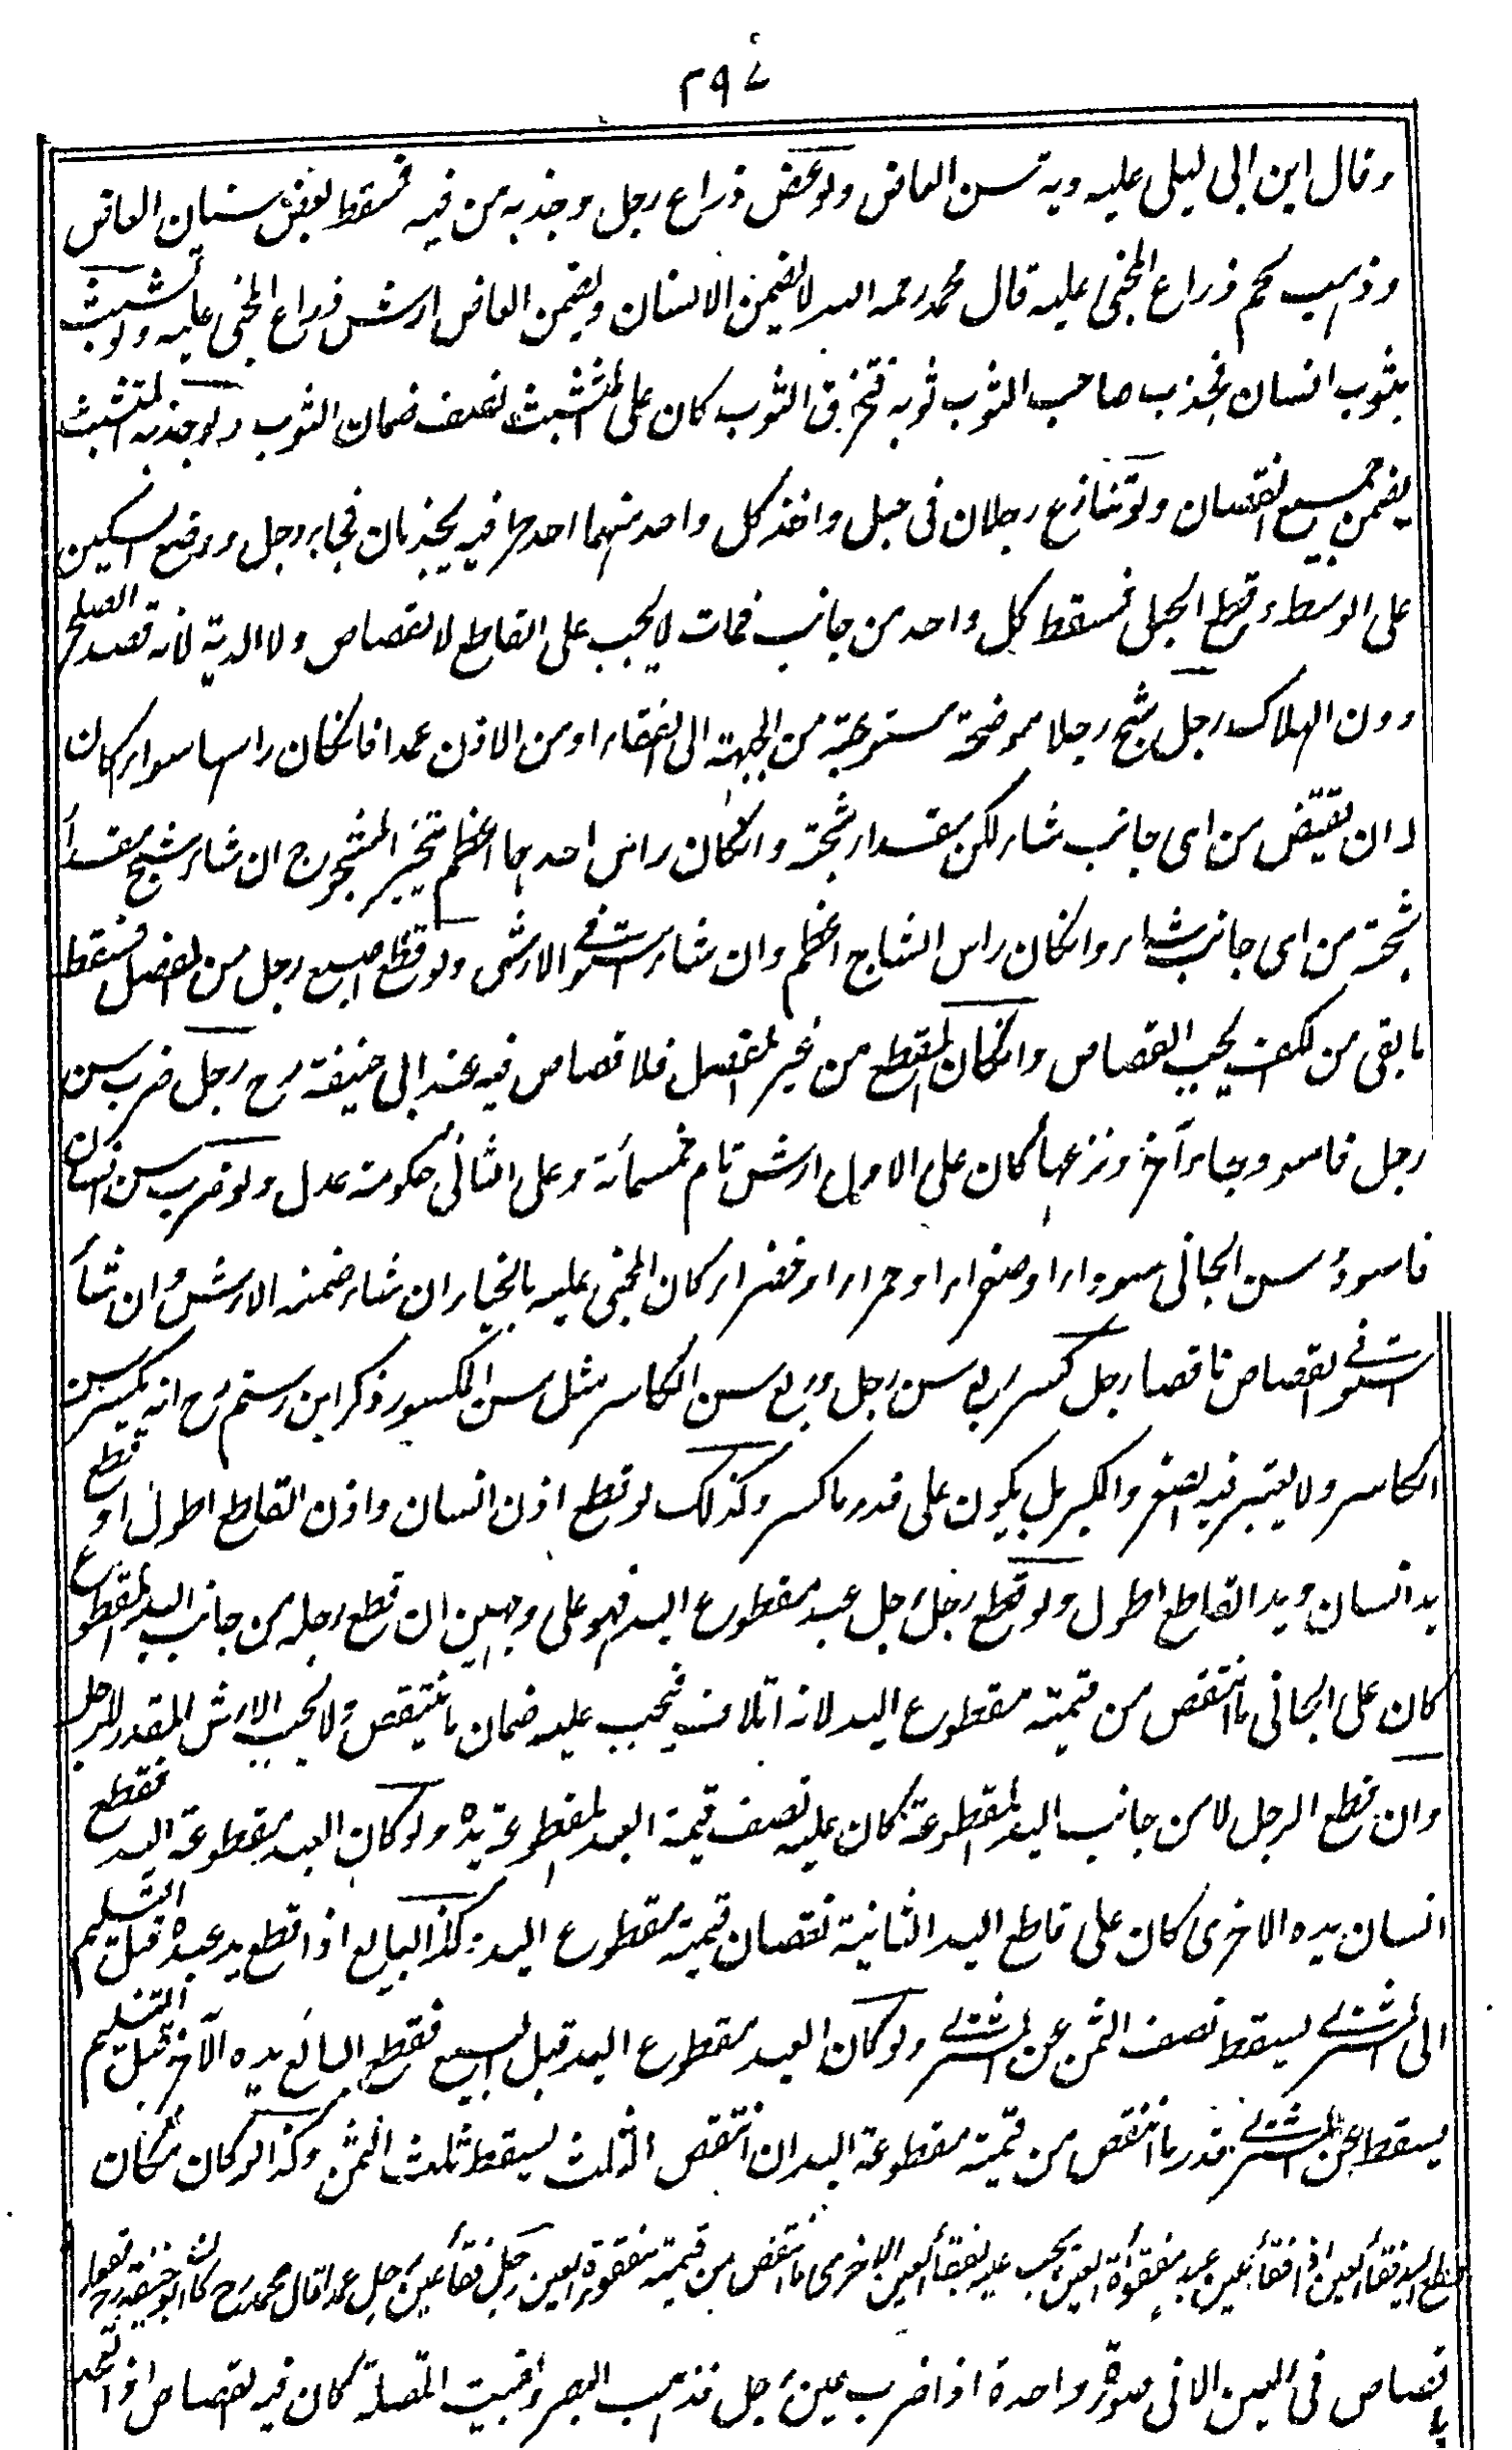 ٣٩٤
وقال ابن ابى ليلى عليه دية سن العاض ولو عض ذراع رجل وجذبه من فيه فسقط بعض اسنان العاض
وذهب لحم ذراع المجنى عليه قال محمد رحمه الله لا يضمن الاسنان ويضمن العاض ارش ذراع المجنى عليه ولو تشبث
بثوب انسان فجذب صاحب الثوب ثوبه فتخرق الثوب كان على المتشبث نصف ضمان الثوب ولو جذبه المتشبث
يضمن جميع النقصان ولو تنازع رجلان فى حبل واخذ كل واحد منهما احد طرفيه يجذبان فجاء رجل ووضع السكين
على الوسط وقطع الحبل فسقط كل واحد من جانب فمات لا يجب على القاطع لا القصاص ولا الدية لانه قصد الصلح
دون الهلاك رجل شج رجلا موضحة مستوعبة من الجبهة الى القفاء او من الاذن عمدا فانكان راسهما سواء كان
له ان يقتص من اى جانب شاء لكن بمقدار شجته وانكان راس احدهما اعظم تخير المشجوج ان شاء شج مقدار
شجته من اى جانب شاء وانكان راس الشاج اعظم وان شاء استوفى الارش ولو قطع اصبع رجل من المفصل فسقط
ما بقى من الكف يجب القصاص وانكان القطع من غير المفصل فلا قصاص فيه عند ابى حنيفة رح رجل ضرب سن
رجل فاسود وجاء آخر ونزعها كان على الاول ارش تام خمسمائة وعلى الثانى حكومة عدل ولو ضرب سن انسان
فاسود وسن الجانى سوداء او صفراء او حمراء او خضراء كان المجنى عليه بالخيار ان شاء ضمنه الارش وان شاء
استوفى القصاص ناقصا رجل كسر ربع سن رجل وربع سن الكاسر مثل سن المكسور ذكر ابن رستم رح انه يكسر سن
الكاسر ولا يعتبر فيه الصغر والكبر بل يكون على قدر ما كسر وكذلك لو قطع اذن انسان واذن القاطع اطول او قطع
يد انسان ويد القاطع اطول ولو قطع رجل رجل عبد مقطوع اليد فهو على وجهين ان قطع رجله من جانب اليد المقطوع
كان على الجانى ما انتقص من قيمته مقطوع اليد لانه اتلاف فيجب عليه ضمان ما ينتقص ولا يجب الارش المقدر للرجل
وان قطع الرجل لا من جانب اليد المقطوعة كان عليه نصف قيمة العبد المقطوعة يده ولو كان العبد مقطوعة اليد فقطع
انسان يده الاخرى كان على قاطع اليد الثانية نقصان قيمته مقطوع اليد كذا البايع اذا قطع يد عبده قبل التسليم
الى المشترى يسقط نصف الثمن عن المشترى ولو كان العبد مقطوع اليد قبل البيع فقطع البائع يده الآخر قبل التسليم
يسقط عن المشترى قدر ما انتقص من قيمته مقطوعة اليد ان انتقص الثلث يسقط ثلث الثمن وكذا لو كان مكان
قطع اليد فقأ العين اذا فقأ عين عبد مفقوءة العين يجب عليه بفقأ العين الاخرى ما انتقص من قيمته مفقوءة العين رجل فقأ عين رجل عمدا قال محمد رح كان ابو حنيفة رح يقول لا
قصاص فى العين الا فى صورة واحدة اذا ضرب عين رجل فذهب البصر وبقيت المقلة كان فيه القصاص اذا تعمد